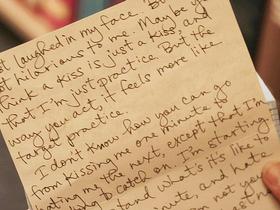 laughed in my face, but
hilarious to me. Maybe y
think a kiss is just a kiss, and
that I'm just practice. But the
way you act, it feels more like
target practice.
I don't know how you can go
from kissing me one minute to
hating my the next, except that I'm
to catch on I'm starting
stand what's it's like to
minute, and hate
not you